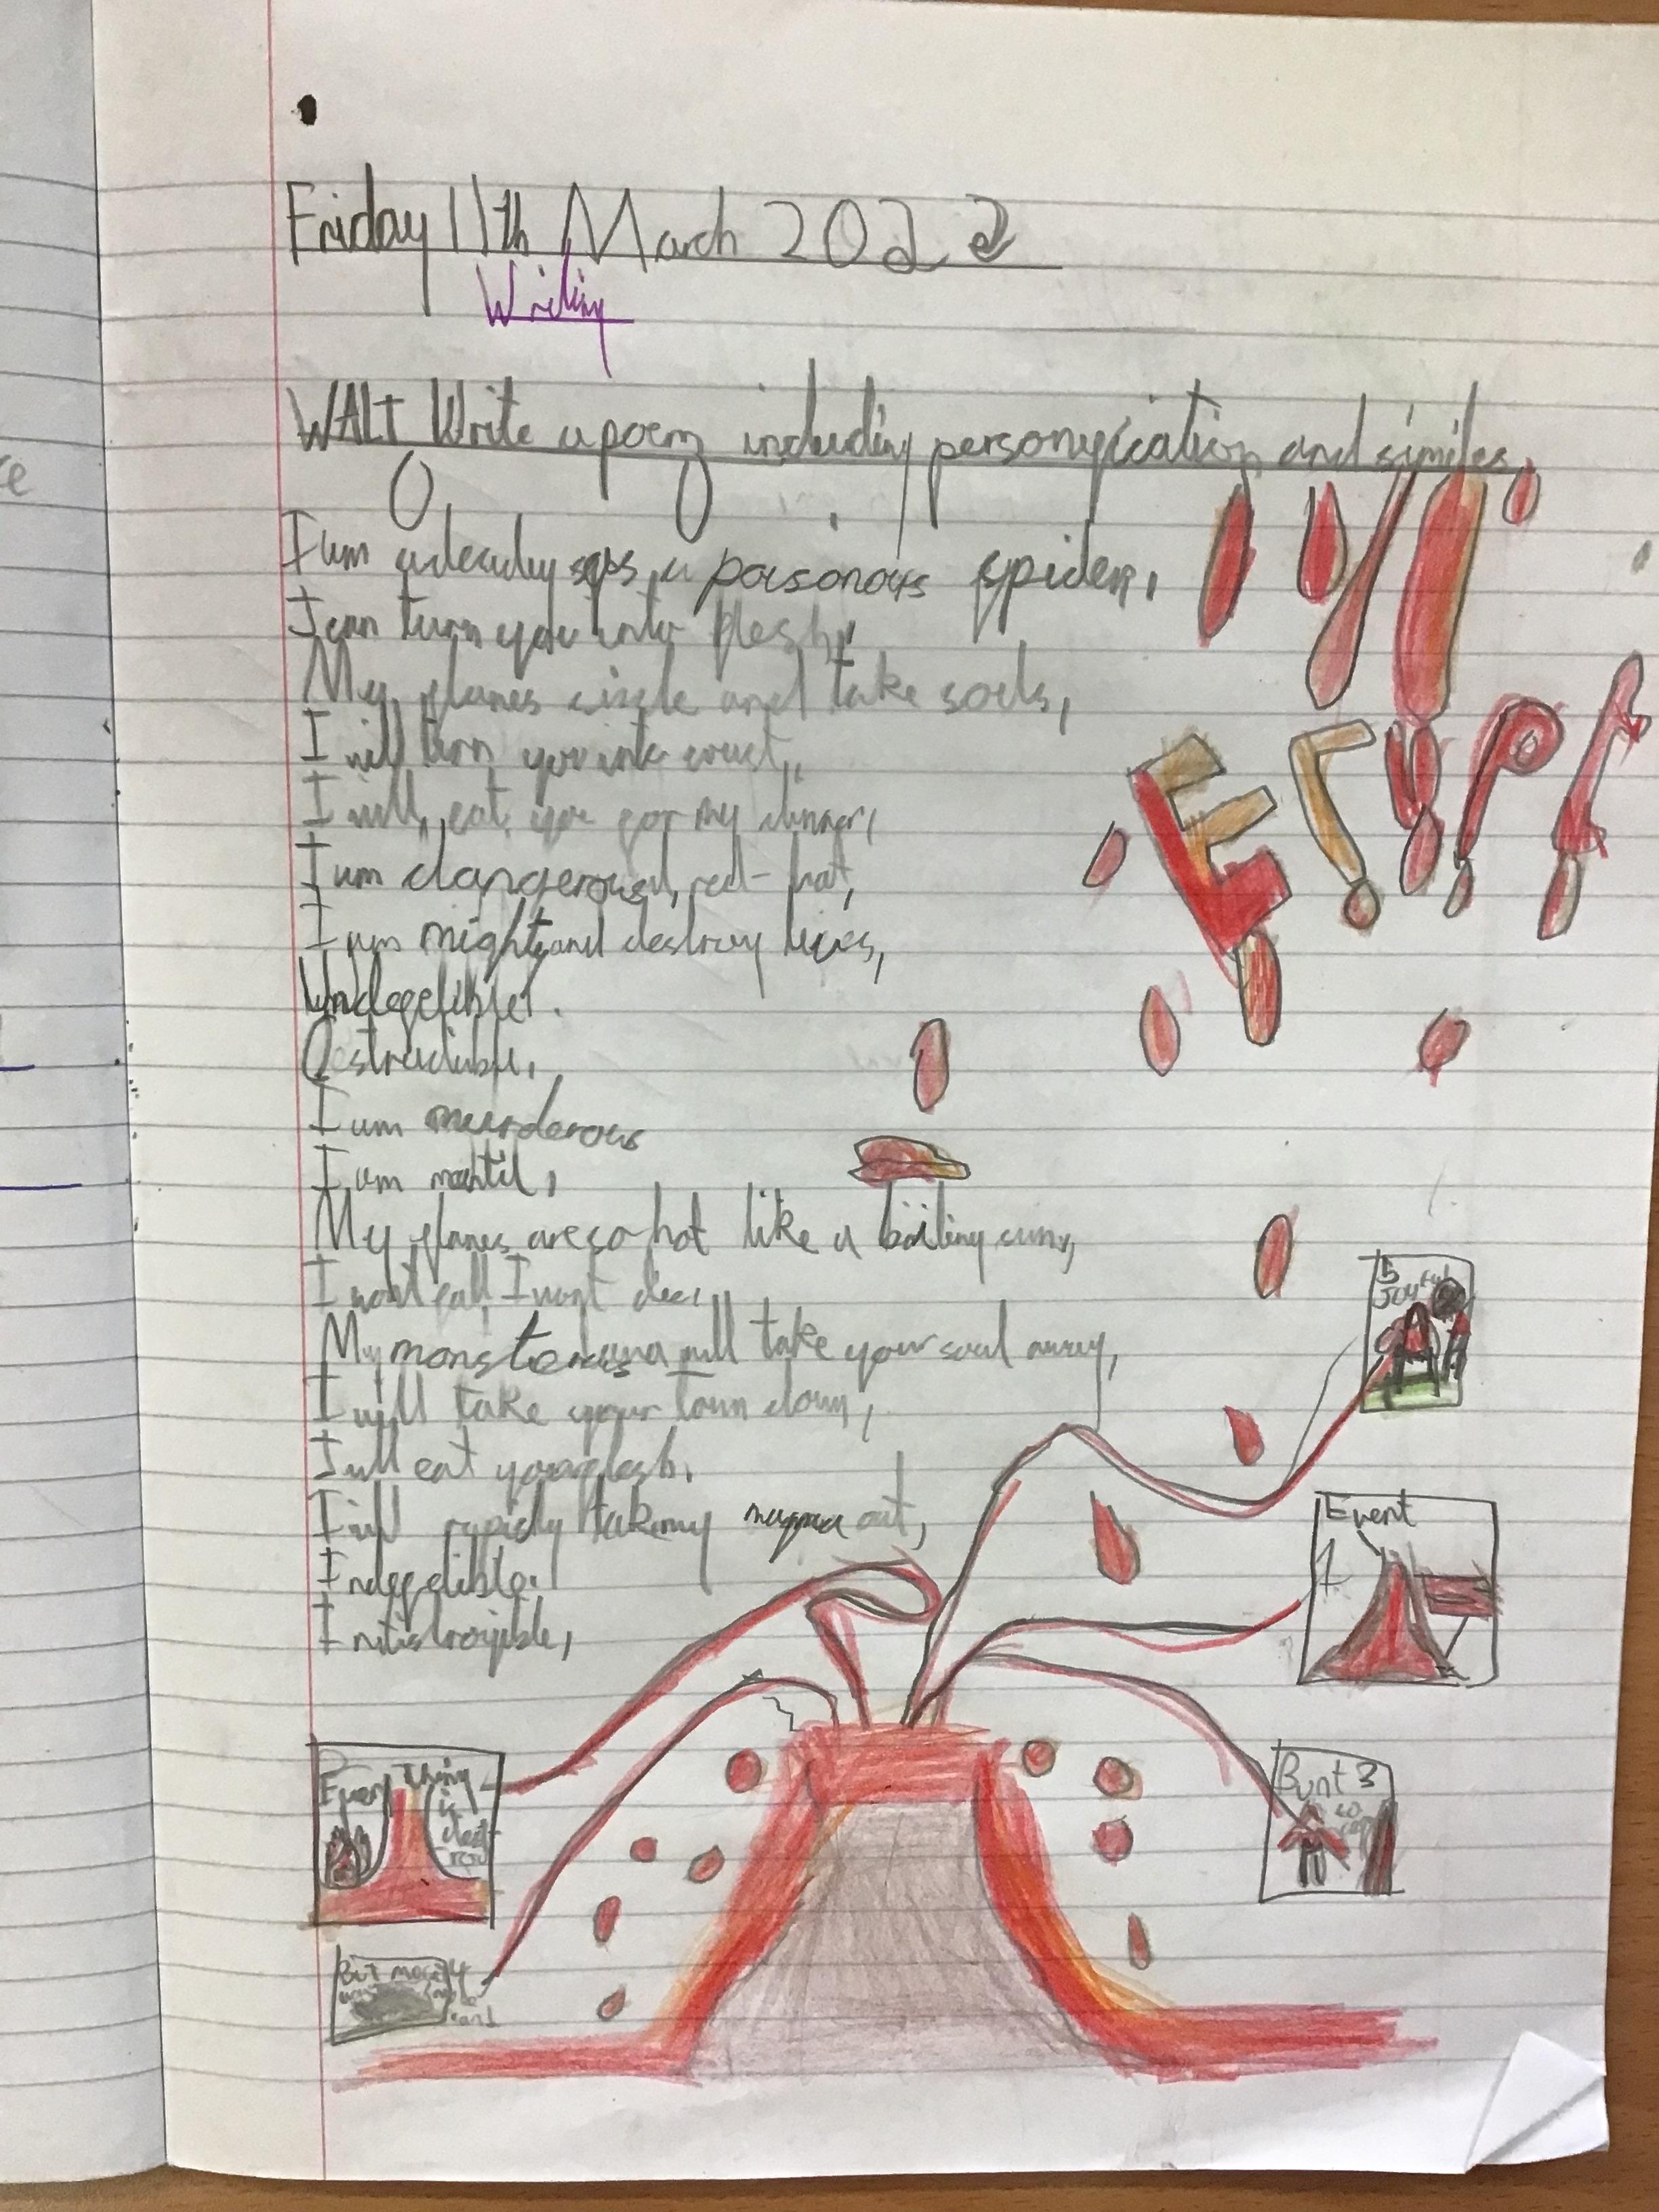 Friday 11th March 2022
Writing
WALT Write a poem including personification and similes
I am a deadly a poisonous spider,
I can turn you into flesh,
My flames circle and take souls,
I will turn you into
I will eat you for my dinner,
I am dangerous, red-hot,
I am mighty and destroy lives,
Undefetible.
Destructible,
I am murderous
I am
My flames are so hot like a boiling sun,
I wont fall, I wont die,
My monsterous lava will take your soul away,
I will take your town down,
I will eat your flesh.
I will rapidly take my magma out,
Indefetible.
Erupt
5
Joyful
Event
1
Every thing
is
Burnt 3
But
4